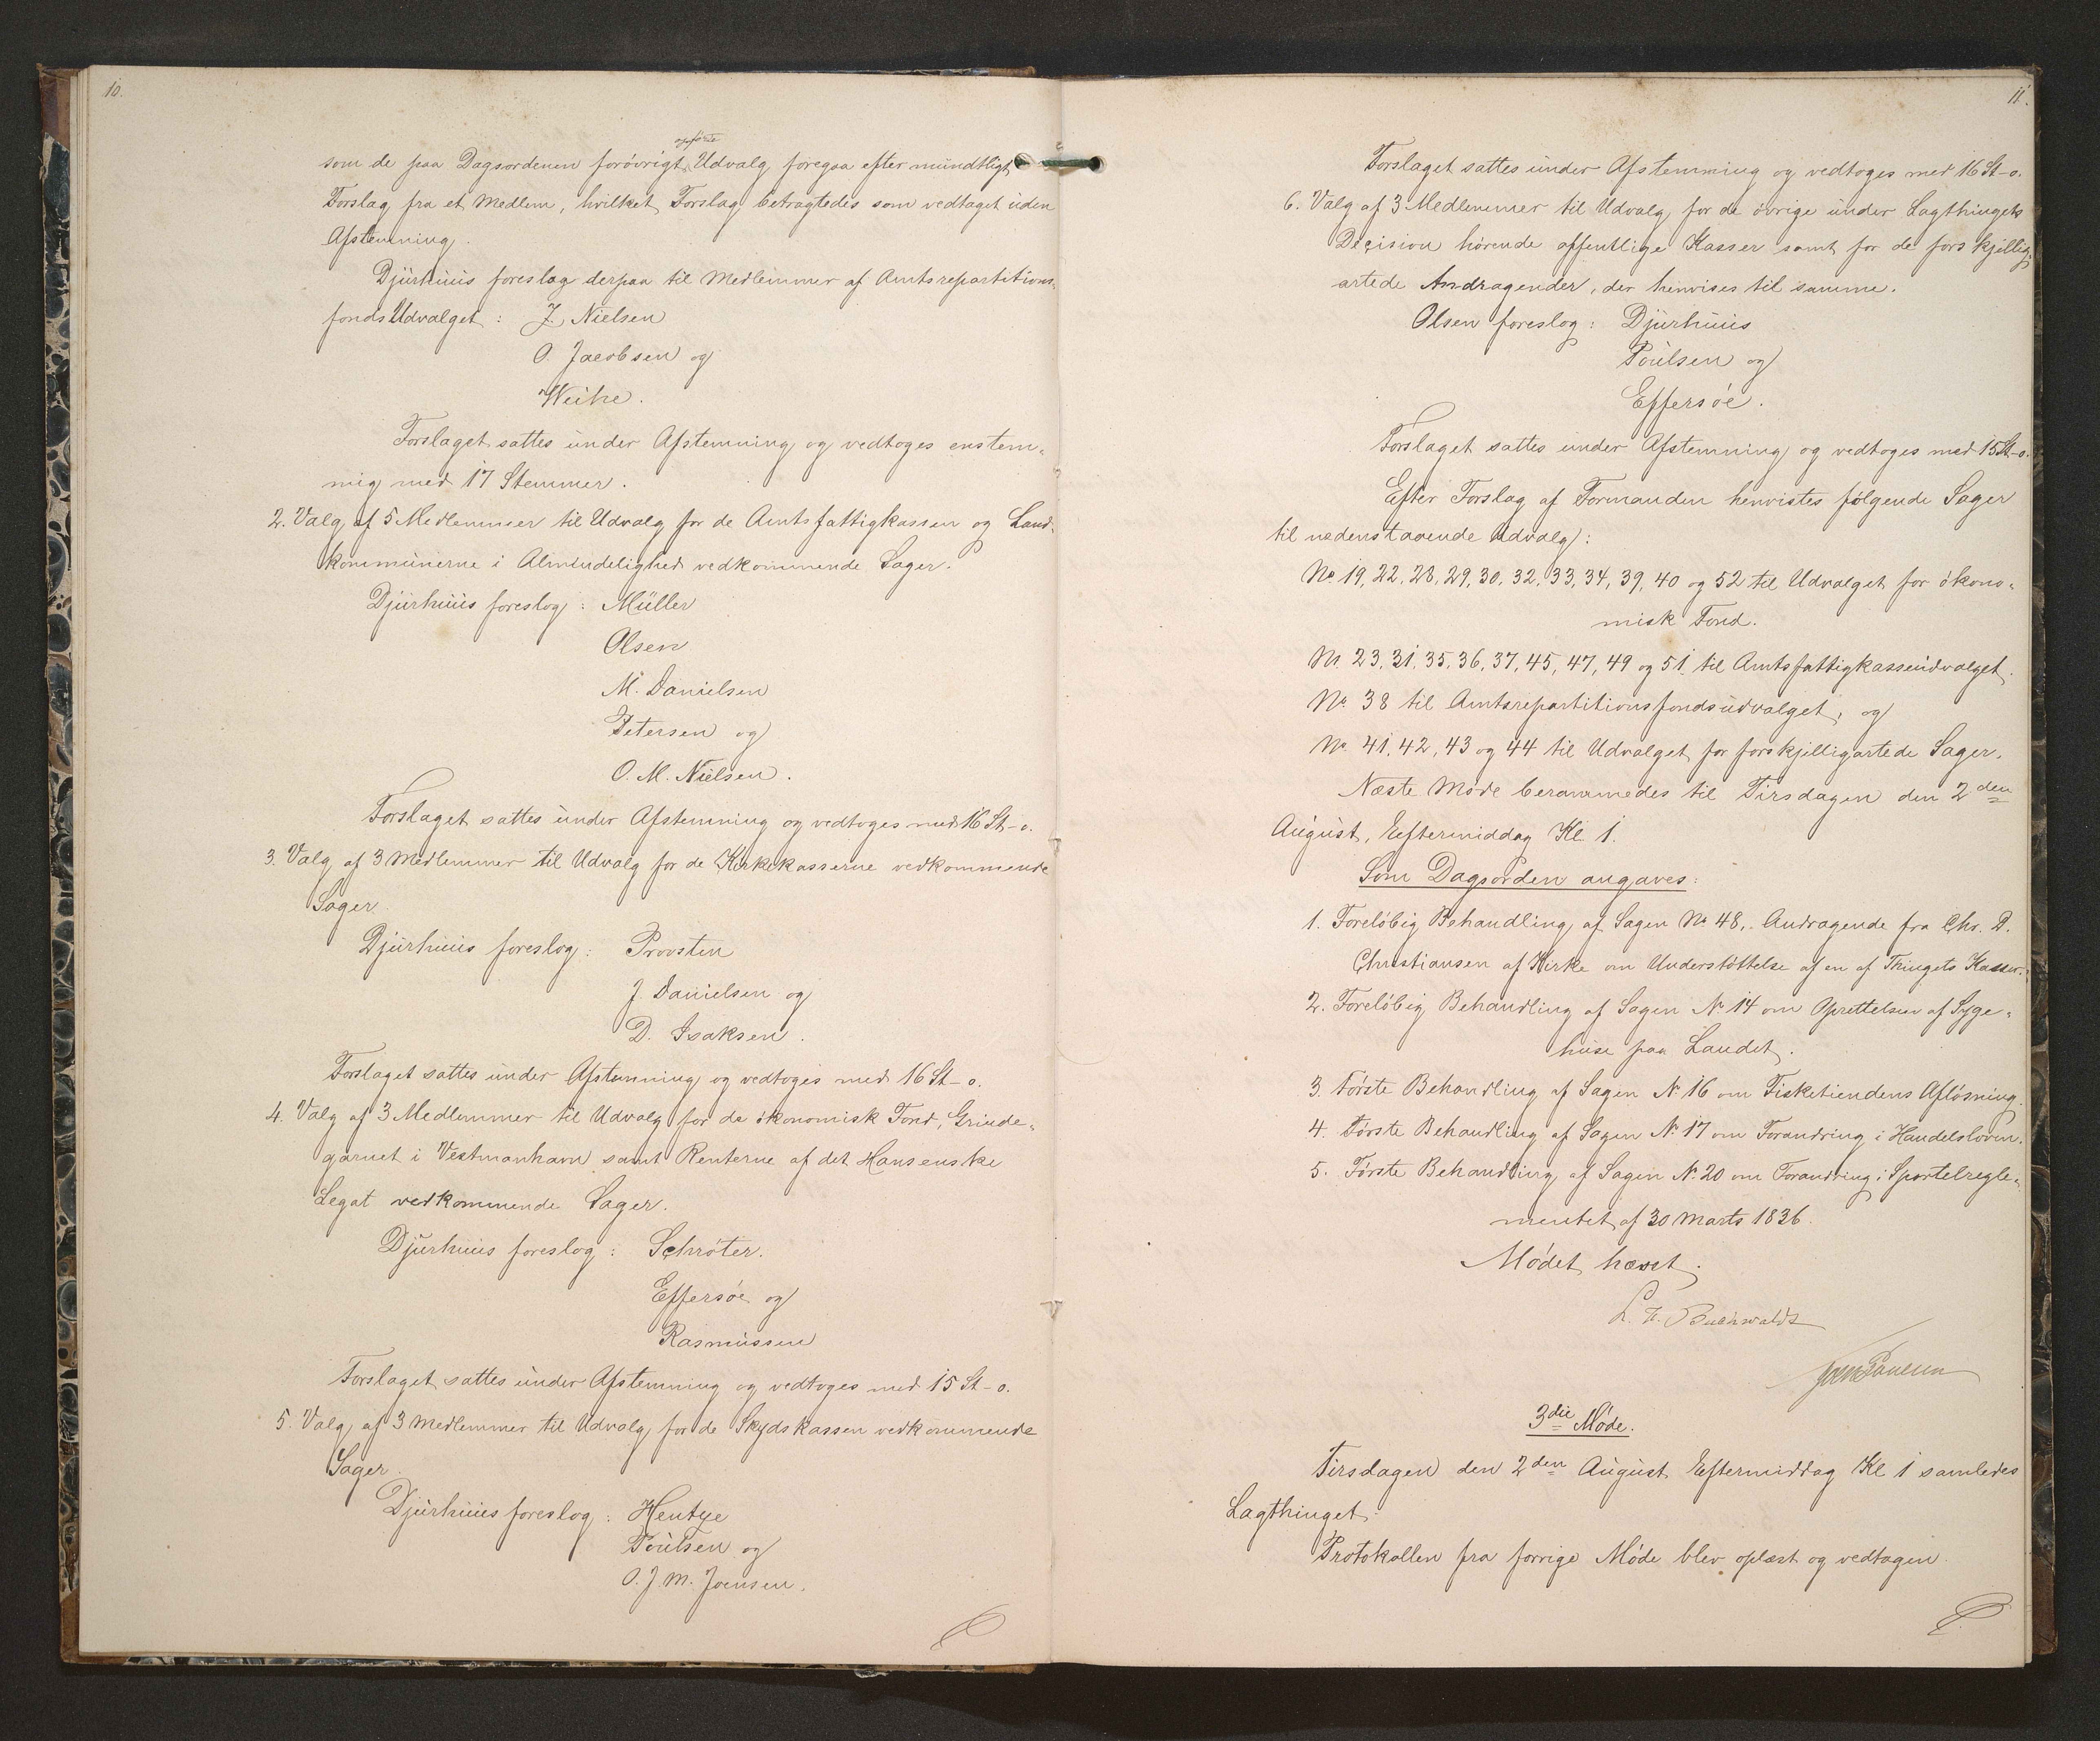 10.
opførte
som de paa Dagsordenen forøvrigt Udvalg foregaa efter mundtligt
Forslag fra et Medlem, hvilket Forslag betragtedes som vedtaget uden
Afstemning.
Djurhuus foreslog derpaa til Medlemmer af Amtsrepartitions-
fondsUdvalget: J. Nielsen
O. Jacobsen og
Weihe.
Forslaget sattes under Afstemning og vedtoges enstem-
mig med 17 Stemmer.
2. Valg af 5 Medlemmer til Udvalg for de Amtsfattigkassen og Land-
kommunerne i Almindelighed vedkommende Sager.
Djurhuus foreslog: Müller
Olsen
M. Danielsen
Petersen og
O. M. Nielsen.
Forslaget sattes under Afstemning og vedtoges med 16 St-o.
3. Valg af 3 Medlemmer til Udvalg for de Kirkekasserne vedkommende
Sager.
Djurhuus foreslog: Provsten
J. Danielsen og
D. Isaksen.
Forslaget sattes under Afstemning og vedtoges med 16 St-o.
4. Valg af 3 Medlemmer til Udvalg for de økonomisk Fond, Grinde-
garnet i Vestmanhavn samt Renterne af det Hansenske
Legat vedkommende Sager.
Djurhuus foreslog: Schrøter.
Effersøe og
Rasmussen
Forslaget sattes under Afstemning og vedtoges med 15 St-o.
5. Valg af 3 Medlemmer til Udvalg for de Skydskassen vedkommende
Sager.
Djurhuus foreslog: Hentze
Poulsen og
O. J. M. Joensen.
11.
Forslaget sattes under Afstemning og vedtoges med 16 St-o.
6. Valg af 3 Medlemmer til Udvalg for de øvrige under Lagthingets
Decision hørende offentlige Kasser samt for de forskjellig-
artede Andragender, der henvises til samme.
Olsen foreslog: Djurhuus
Poulsen og
Effersøe.
Forslaget sattes under Afstemning og vedtoges med 15 St-o.
Efter Forslag af Formanden henvistes følgende Sager
til nedenstaaende Udvalg:
No 19, 22, 28, 29, 30, 32, 33, 34, 39, 40 og 52 til Udvalget for økono-
misk Fond.
No 23, 31, 35, 36, 37, 45, 47, 49 og 51 til Amtsfattigkasseudvalget.
No 38 til Amtsrepartitionsfondsudvalget, og
No 41, 42, 43 og 44 til Udvalget for forskjelligartede Sager.
Næste Møde berammedes til Tirsdagen den 2den
August, Eftermiddag Kl 1.
Som Dagsorden angaves:
1. Foreløbig Behandling af Sagen No 48, Andragende fra Chr. D.
Christiansen af Kirke om Understøttelse af en af Thingets Kasser.
2. Foreløbig Behandling af Sagen No 14 om Oprettelsen af Syge-
huse paa Landet.
3. Første Behandling af Sagen No 16 om Fisketiendens Afløsning.
4. Første Behandling af Sagen No 17 om Forandring i Handelsloven.
5. Første Behandling af Sagen No 20 om Forandring i Sportelregle-
mentet af 30 Marts 1836.
Mødet hævet.
L. F. Buchwaldt
Poulsen
3die Møde.
Tirsdagen den 2den August Eftermiddag Kl 1 samledes
Lagthinget.
Protokollen fra forrige Møde blev oplæst og vedtagen.